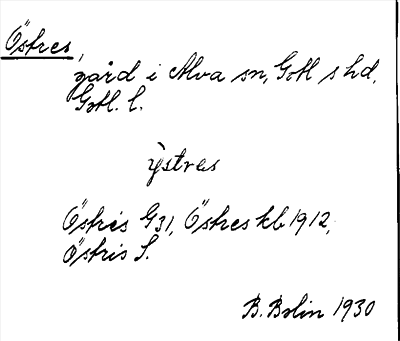 Östres,
gård i Alva sn, Gotl s hd,
Gotl. l.
ýstras
Östris G 31, Östres kb 1912,
Östris S.
B. Bolin 1930